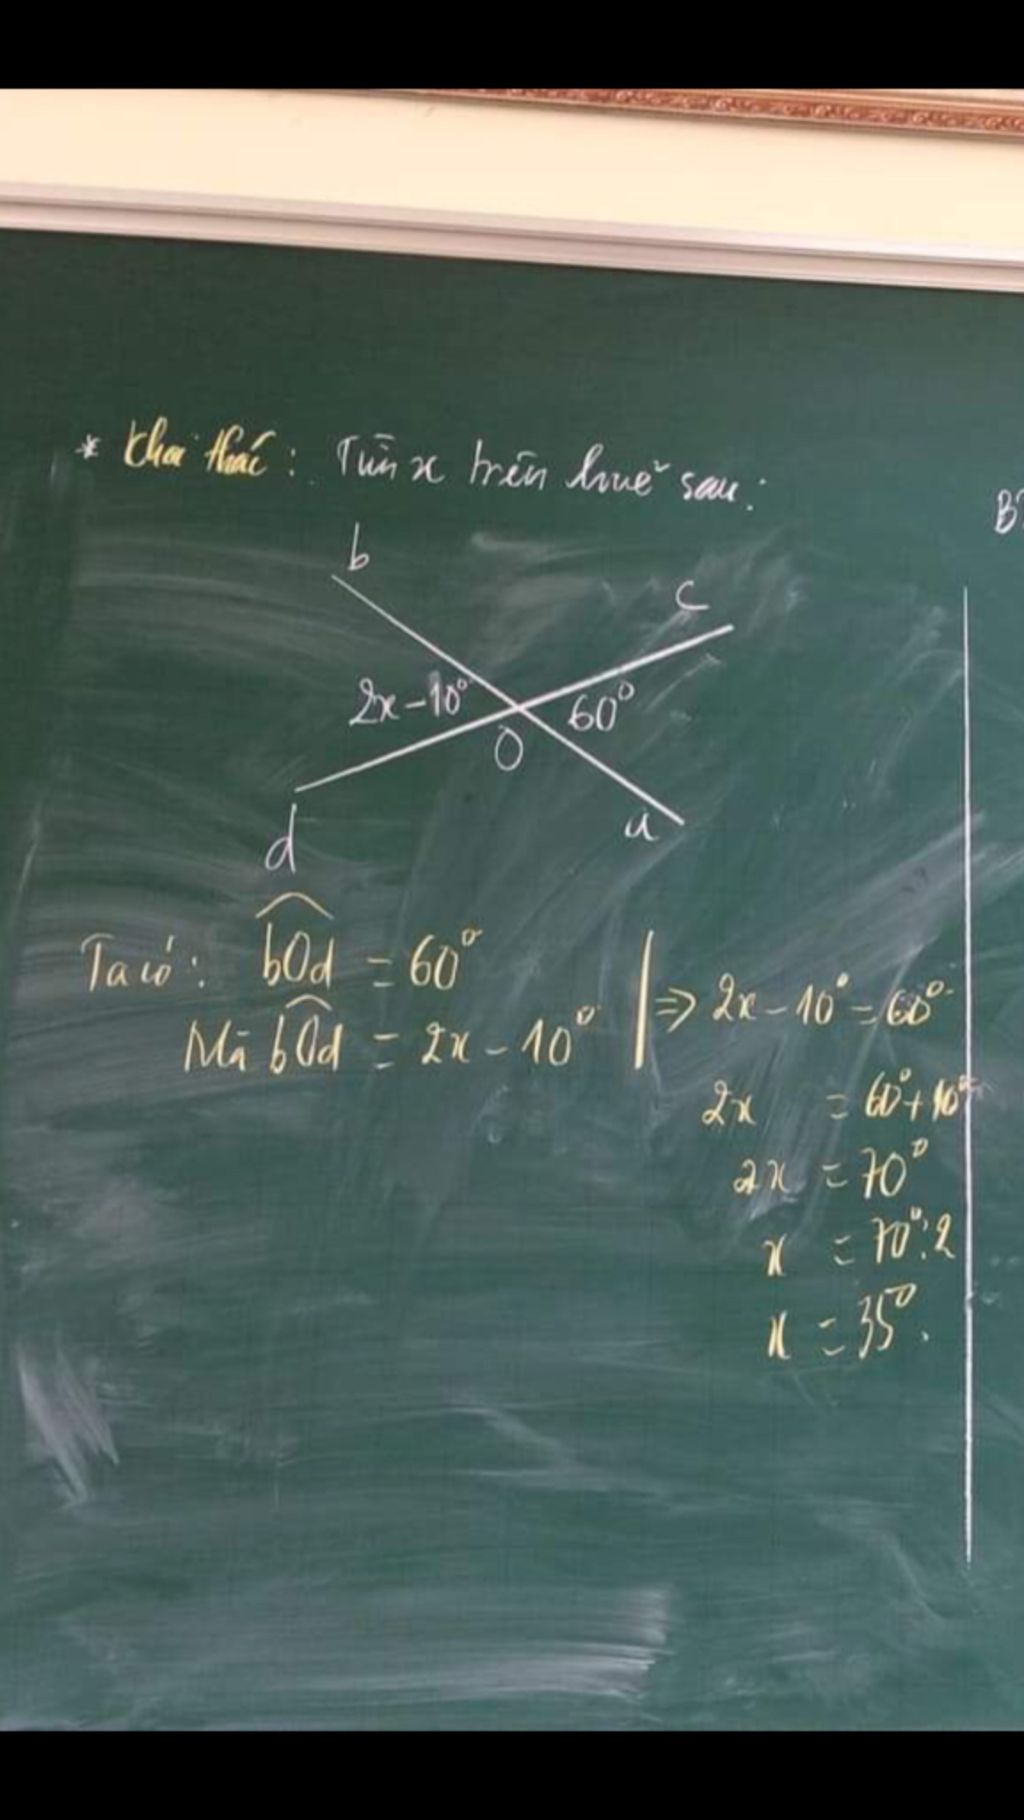 * Khai thác: Tìm x trên hình sau:
B
b
c
2x-10°
60°
O
a
d
Ta có: bOd = 60°
Mà bOd = 2x - 10°
=> 2x - 10° = 60°
2x = 60° + 10°
2x = 70°
x = 70° : 2
x = 35°.